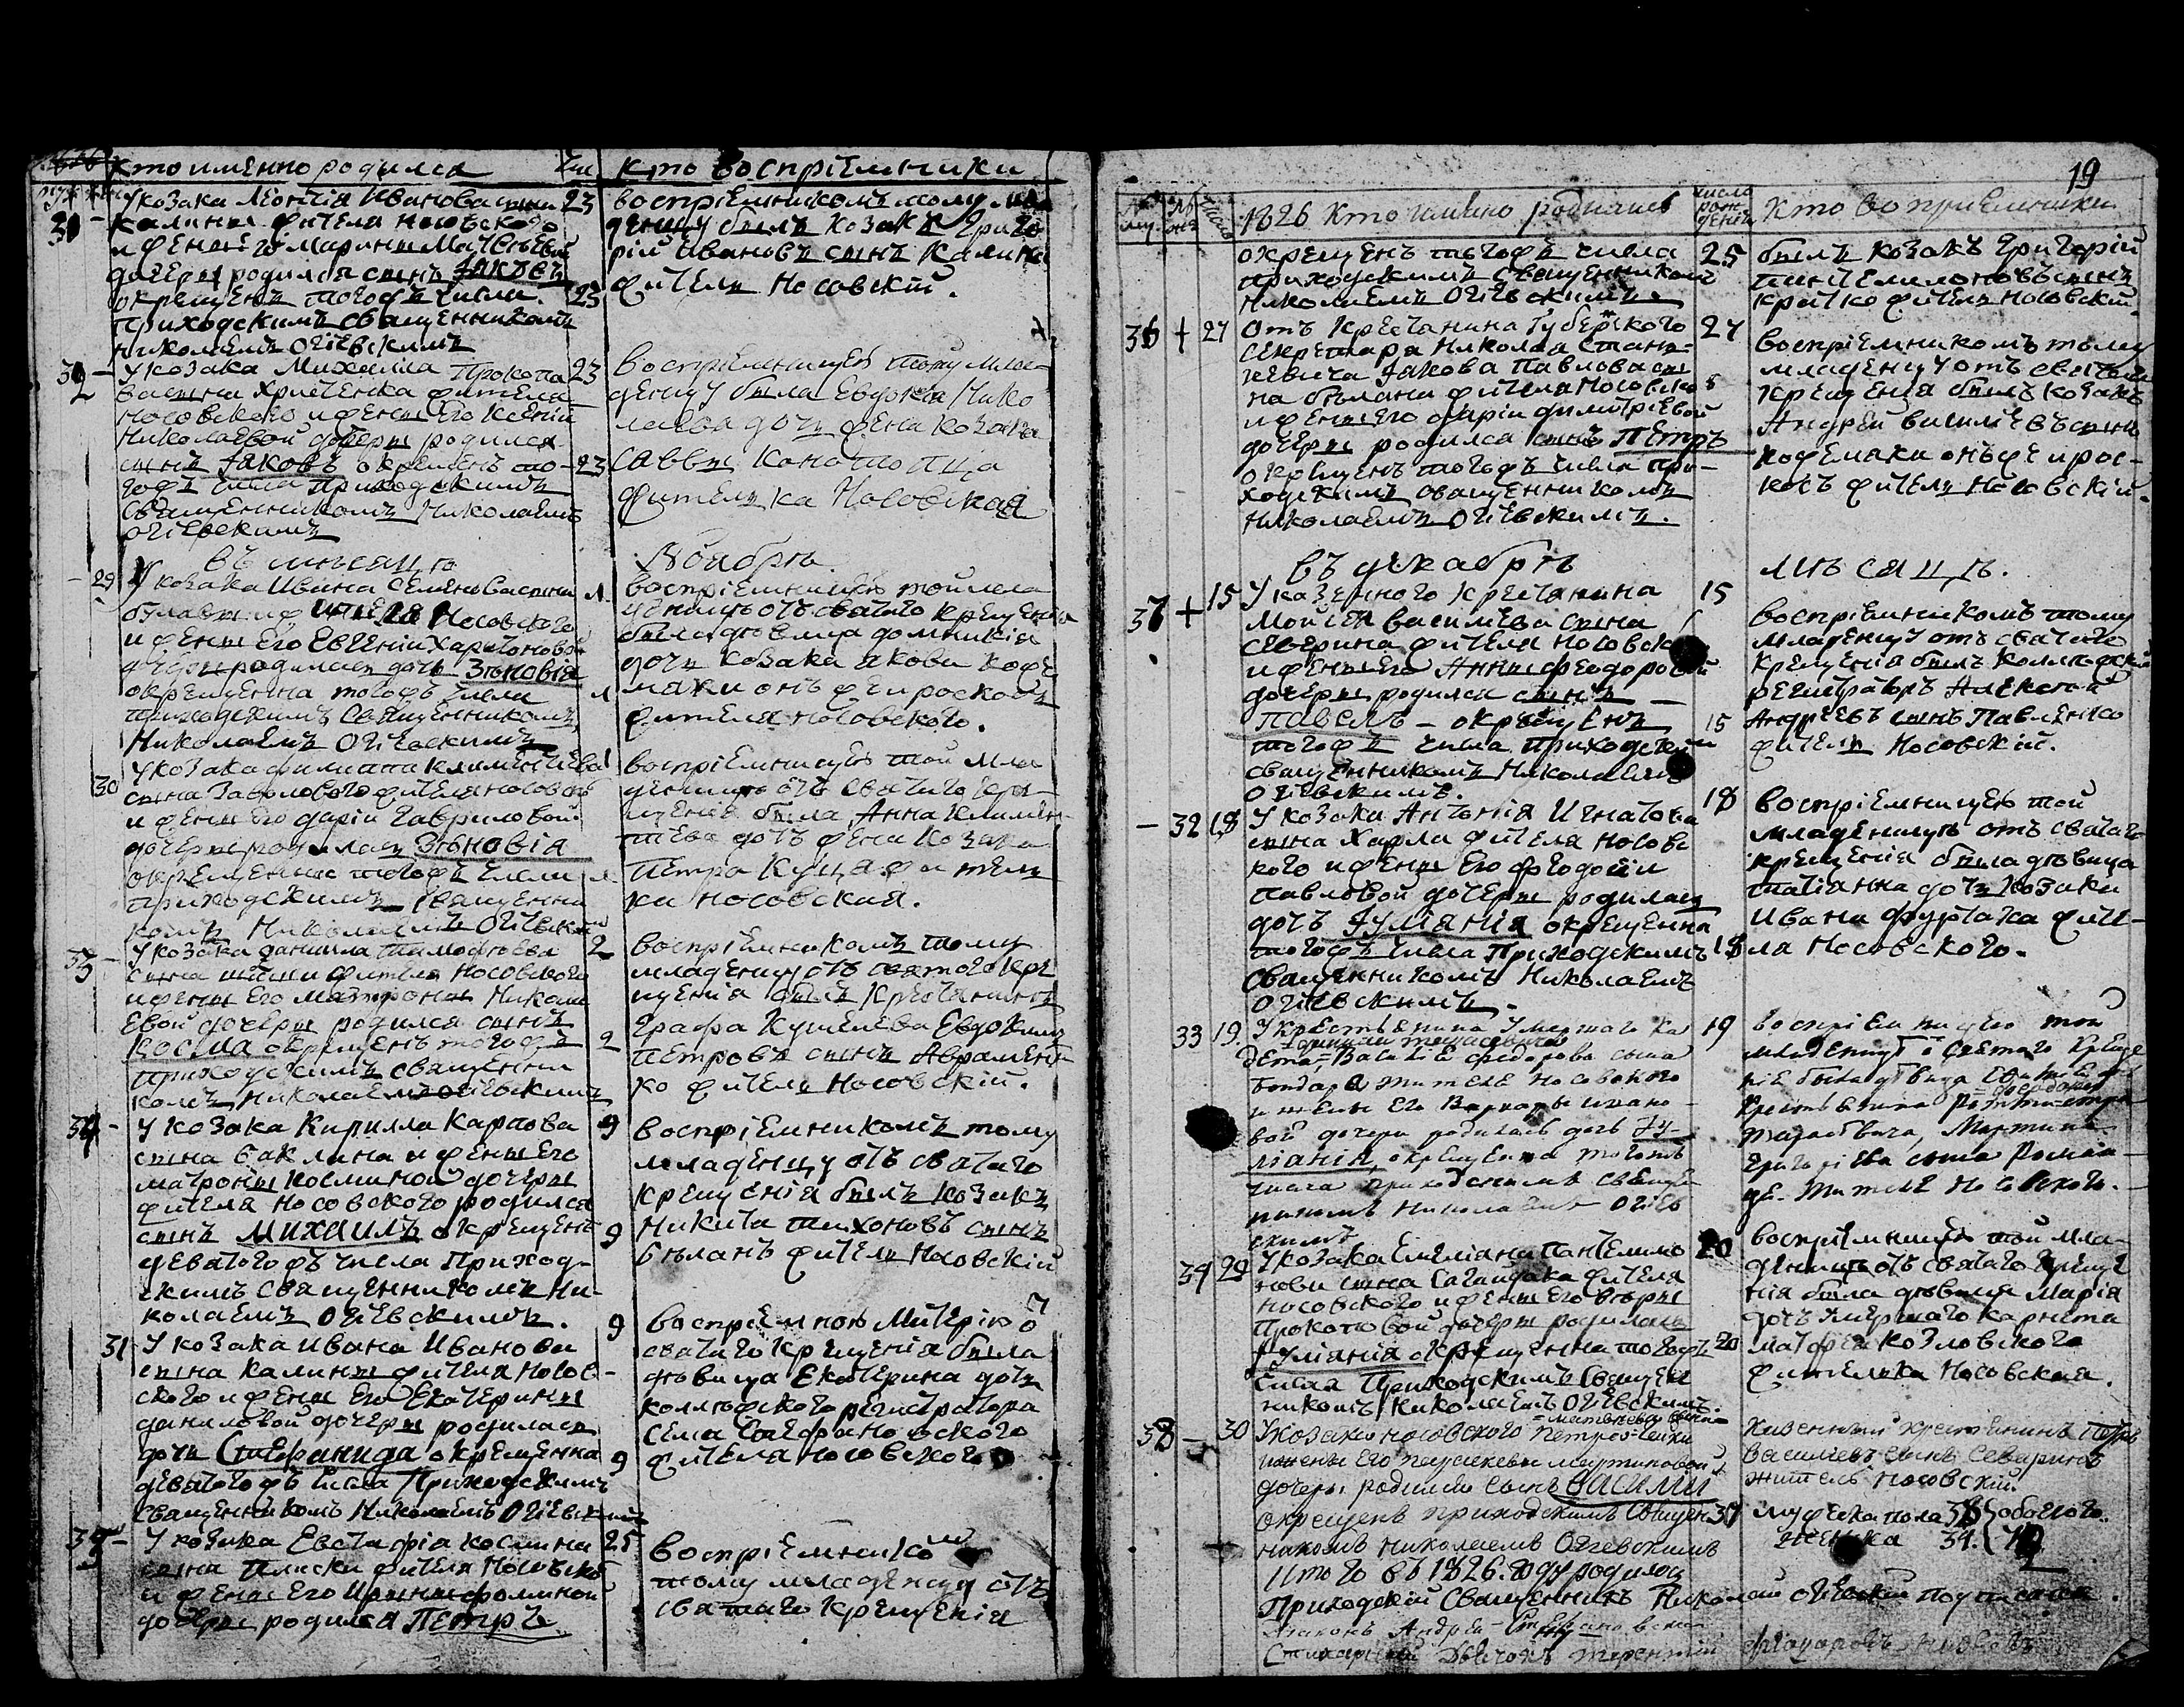 кто именно родился
кто воспріемники
31
У козака Леонтія Иванова сына 23
Калины жителя Носовского
и жены его Марины Матвѣевой
дочеры родился сынъ Іаковъ
окрещенъ тогожъ числа. 23
приходскимъ священникомъ
Николаемъ Огіевскимъ
воспріемникомъ тому мла
денцу былъ козакъ Григо
рій Ивановъ сынъ Калина
житель Носовскій.
32
У козака Михаила Прокопа 23
жителя
Носовского и жены его Ксеніи
Николаевой дочеры родился
сынъ Іаковъ окрещенъ то- 23
гожъ числа приходскимъ
священникомъ Николаемъ
Огіевскимъ
воспріемницею тому младенцу была Евдокія Нико
лаева дочь жена козака
Саввы Конотопца
жителька Носовская
въ мѣсяцѣ
Ноябрѣ.
29 У козака Ивана Семенова сына
жителя Носовского
и жены его Евгеніи Харитоновой
дочеры родилась дочь Зѣновія
окрещенна тогожъ числа
приходскимъ священникомъ
Николаемъ Огіевскимъ
воспріемницею той мла
деницѣ отъ святаго крещенія
была дѣвица Домникія
дочь козака Якова Коже
мяки онъ же и Проскочъ
жителя Носовского.
30
У козака Филиппа Клименгіева
сына жителя Носовс
и жены его Даріи Гавриловой
дочеры родилась Зѣновія
окрещенна тогожъ числа
приходскимъ священни
комъ Николаемъ Огіевским
воспріемницею той мла
деницѣ отъ святаго кре
щенія была Анна Климен
тіева дочь жена козака
Петра Куца жытель
ка Носовская.
33
У козака Даніила Тимофѣева 2
сына жителя Носовского
и жены его Матроны Никола
евой дочеры родился сынъ
Косма окрещенъ тогожъ 2
приходскимъ священни
комъ Николаемъ Огіевскимъ
воспріемникомъ тому
младенцу отъ святого кре
щенія былъ крестянинъ
графа Кушелева Евдокимъ
Петровъ сынъ Авраменко
житель Носовскій.
34
У козака Кирилла Карпова 9
сына Баклана и жены его
Матроны Косминой дочеры
жителя Носовского родился
сынъ Михаилъ окрещенъ 9
девятогожъ числа приход-
скимъ священникомъ Ни-
колаемъ Огіевскимъ.
воспріемникомъ тому
младенцу отъ святаго
крещенія былъ козакъ
Никита Тихоновъ сынъ
Бѣланъ житель Носовскій
31 У козака Ивана Иванова 9
сына Калины жителя Носов-
ского и жены его Екатерины
Даниловой дочеры родилась
дочь Стефанида окрещенна 9
девятогожъ числа приходскимъ
священникомъ Николаемъ Огіевским
воспріемною матерію о
святаго крещенія была
дѣвица Екатерина дочь
коллежского регистратора
Сѣма Стефановского
жителя Носовского
35
У козака Евстафія Космина 25
сына Плиски жителя Носовско
и жены его Ирины Фоминой
дочеры родился Петръ
воспріемником
тому младенцу отъ
святаго крещенія
19
1826 Кто имянно родились
числа рожденія
Кто восприемники
окрещенъ тогожъ числа 25
приходскимъ священникомъ
Николаемъ Огіевскимъ.
былъ козакъ Григорій
Пантелимоновъ сынъ
житель Носовскій.
36 27
Отъ крестянина губерского 27
секретаря Николая Стани-
кевича Іакова Павлова сы
на Бѣлана жителя Носовско
и жены его Даріи Димитріевой
дочеры родился сынъ Петръ
окрещенъ тогожъ числа при-
ходскимъ священникомъ
Николаемъ Огіевскимъ.
воспріемникомъ тому
младенцу отъ святаго
крещенія былъ козакъ
Андрей Василіевъ сынъ
Кожемяки онъ же и Прос-
кочъ житель Носовскій.
въ декабрѣ
мѣсяцѣ.
37 15
У казенного крестянина 15
Мойсея Василіева сына
Северина жителя Носовско
и жены его Анны Феодоровой
дочеры родился сынъ
Павелъ - окрещенъ 15
тогожъ числа приходским
священникомъ Николаемъ
Огіевскимъ.
воспріемникомъ тому
младенцу отъ святаго
крещенія былъ коллежскій
регистраторъ Алексей
Андреевъ сынъ Павленко
житель Носовскій.
32 18
У козака Антонія Игнатова 18
сына Харла жителя Носовс
кого и жены его Феодосіи
Павловой дочеры родилась
дочъ Іуліанія окрещенна
тогожъ числа приходскимъ 18
священникомъ Николаемъ
Огіевскимъ.
воспріемницею той
младеницѣ отъ святаго
крещенія была дѣвица
Татіанна дочь козака
Ивана Фуртака жите-
ля Носовского.
33 19.
У крестьянина умершаго Ка 19
дета Василіе Федорова сына
Бондара жителе Носовского
и жены его Варвары Ивано
вой дочери родилась дочъ Іу-
ліанія, окрещенна тогожъ
числа приходскимъ священ
никомъ Николаемъ Огіев
скимъ
воспріемницею той
младеницѣ о святаго креще
ніе была дѣвица
крестьянина
Мартина
Григоріева сына Роман
жителе Носовского.
34 20
У козака Емиліана Пантелимо 20
нова сына Сагайдака жителя
Носовского и жены его Вѣры
Прокоповой дочеры родилась
Іуліанія окрещенна тогожъ 20
числа приходскимъ священ
никомъ Николаемъ Огіевскимъ.
воспріемницею той мла
деницѣ отъ святаго креще
нія была дѣвица Марія
дочъ умершаго карнета
Матфея Козловского
жителька Носовская.
38 30
У козака Носовского
и жены его Параскевы Мартиновой
дочеры родился сынъ Василій
окрещенъ приходскимъ священ
никомъ Николаемъ Огіевскимъ
казенный крестянинъ Петръ
Василіевъ сынъ Северинъ
житель Носовскій.
Итого въ 1826. году родилось
мужеска пола 38 обоегоː
женска 34. 72
Приходскій Священникъ Николай Огіевскій подписался.
Діаконъ Андрей Стефановскій
Стихарный Дьячокъ Терентій